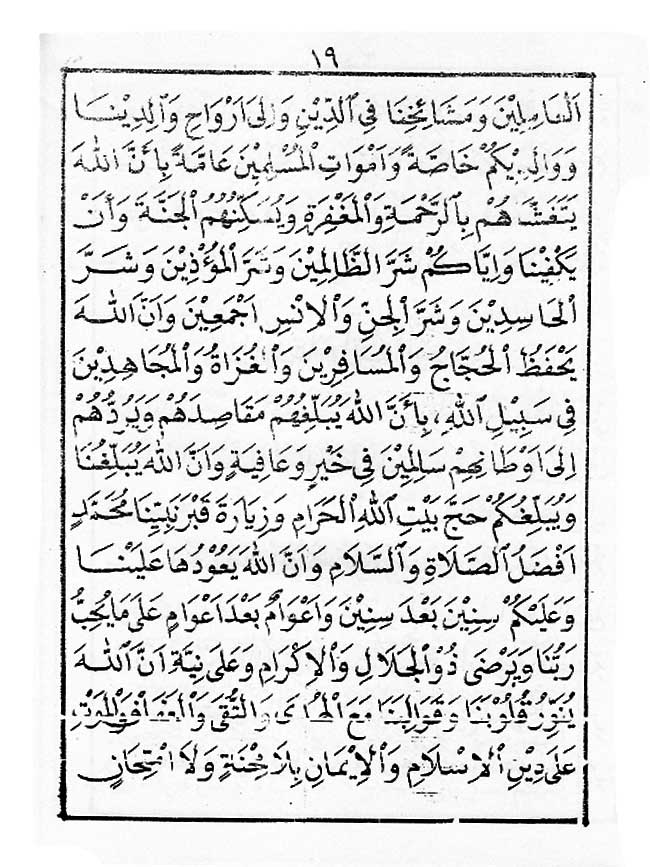 ١٩
اَلْعَامِلِيْنَ وَمَشَائِخِنَا فِي الدِّيْنِ وَاِلَى اَرْوَاحِ وَالِدِيْنَا
وَوَالِدِيْكُمْ خَاصَّةً وَاَمْوَاتِ الْمُسْلِمِيْنَ عَامَّةً بِاَنَّ اللهَ
يَتَغَشَّاهُمْ بِالرَّحْمَةِ وَالْمَغْفِرَةِ وَيُسَكِّنُهُمُ الْجَنَّةَ وَاَنْ
يَكْفِيْنَا وَاِيَّاكُمْ شَرَّ الظَّالِمِيْنَ وَشَرَّ الْمُؤْذِيْنَ وَشَرَّ
الْحَاسِدِيْنَ وَشَرَّ الْجِنِّ وَالْاِنْسِ اَجْمَعِيْنَ وَاَنَّ اللهَ
يَحْفَظُ الْحُجَّاجُ وَالْمُسَافِرِيْنَ وَالْغُزَاةُ وَالْمُجَاهِدِيْنَ
فِي سَبِيْلِ اللهِ، بِأَنَّ اللهَ يُبَلِّغُهُمْ مَقَاصِدَهُمْ وَيَرُدُّهُمْ
اِلَى اَوْطَانِهِمْ سَالِمِيْنَ فِي خَيْرٍ وَعَافِيَةٍ وَاَنَّ اللهَ يُبَلِّغُنَا
وَيُبَلِّغُكُمْ حَجَّ بَيْتِ اللهِ الْحَرَامِ وَزِيَارَةَ قَبْرِ نَبِيِّنَا مُحَمَّدٍ
اَفْضَلُ الصَّلَاةِ وَالسَّلَامِ وَاَنَّ اللهَ يَعُوْدُهَا عَلَيْنَا
وَعَلَيْكُمْ سِنِيْنَ بَعْدَ سِنِيْنَ وَاَعْوَامٌ بَعْدَ اَعْوَامٍ عَلَى مَا يُحِبُّ
رَبُّنَا وَيَرْضَى ذُوالْجَلَالِ وَالْاِكْرَامِ وَعَلَى نِيَّةِ اَنَّ اللهَ
يُنَوِّرُ قُلُوْبَنَا وَقَوَالِبَنَا مَعَ الْهُدَى وَالتُّقَى وَالْعَفَافِ وَالْمَوْتِ
عَلَى دِيْنِ الْاِسْلَامِ وَالْاِيْمَانِ بِلَا مِحْنَةٍ وَلَا امْتِحَانٍ